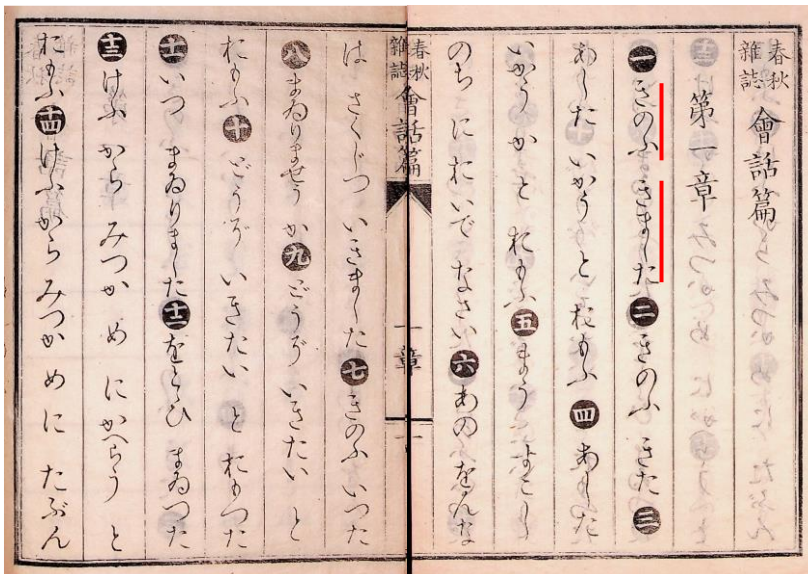 春秋雜誌 會話篇
第一章
一 きのふ きました 二 きのふ きた 三
あした いかう と おもふ 四 あした
いかう か と おもふ 五 まう すこし
のち に おいで なさい 六 あの をんな
春秋雜誌 會話篇 一章 一
は さくじつ いきました 七 きのふ いつた
八 まゐりませう か 九 どうぞ いきたい と
おもふ 十 どうぞ いきたい と おもつた
十一 いつ まゐりました 十二 をとゝひ まゐつた
十三 けふ から みつか め に かへらう と
おもふ 十四 けふ から みつか め に たぶん